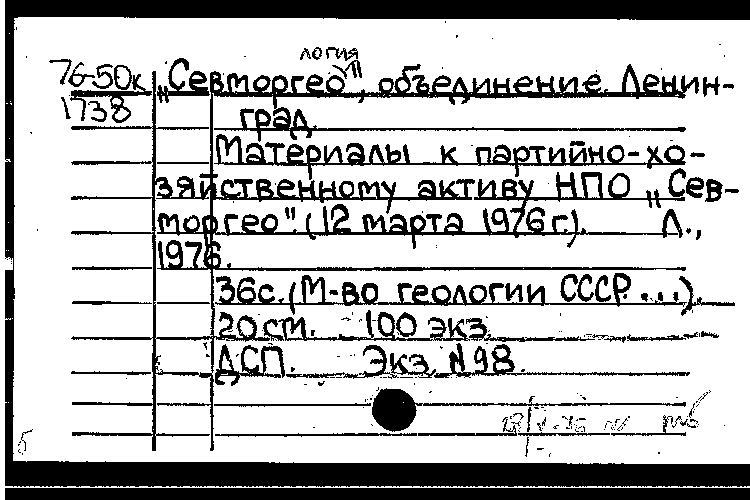 логия
76-50к „Севморгео", объединение. Ленин-
1738 град.
Материалы к партийно-хо-
зяйственному активу НПО „Сев-
моргео". (12 марта 1976 г.). Л.,
1976.
36 с. (М-во геологии СССР...).
20 см. 100 экз.
ДСП. Экз. №98.
б